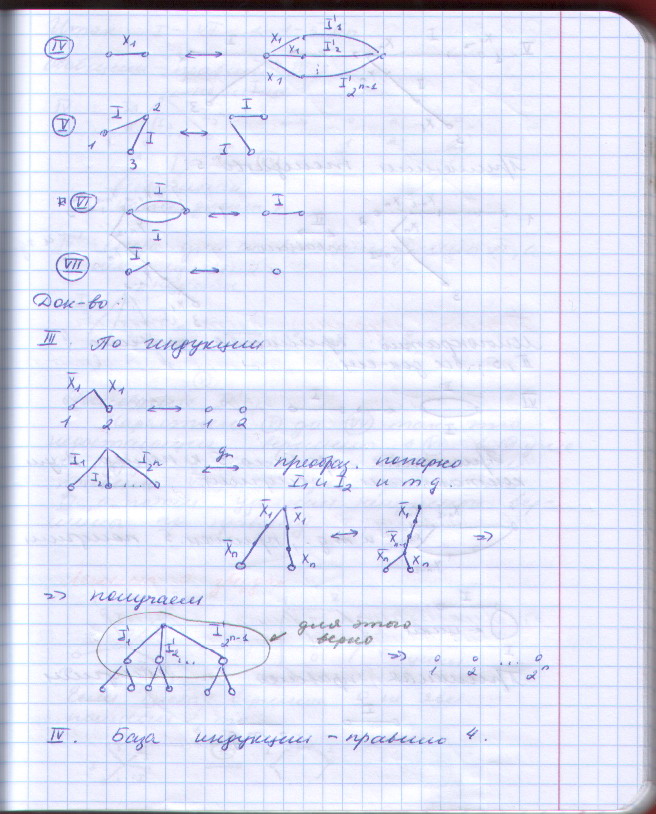 IV X₁ ↔ X₁ I'₁ X₁ I'₂ X₁ ⋮ I'₂ⁿ⁻¹
V I 2 I 1 3 ↔ I I
VI I I ↔ I
VII I ↔
Док-во:
III. По индукции
X̅₁ X₁ 1 2 ↔ 1 2
I₁ I₂ ... I₂ⁿ ↔ преобраз. попарно
I₁ и I₂ и т д.
X̅₁ X̅₁ X̅ₙ Xₙ ↔ X̅₁ X̅ₙ₋₁ X̅ₙ Xₙ ⇒
⇒ получаем
I'₁ I'₂ ... I'₂ⁿ⁻¹ ← для этого
верно
⇒ 1 2 ... 2ⁿ
IV. База индукции – правило 4.